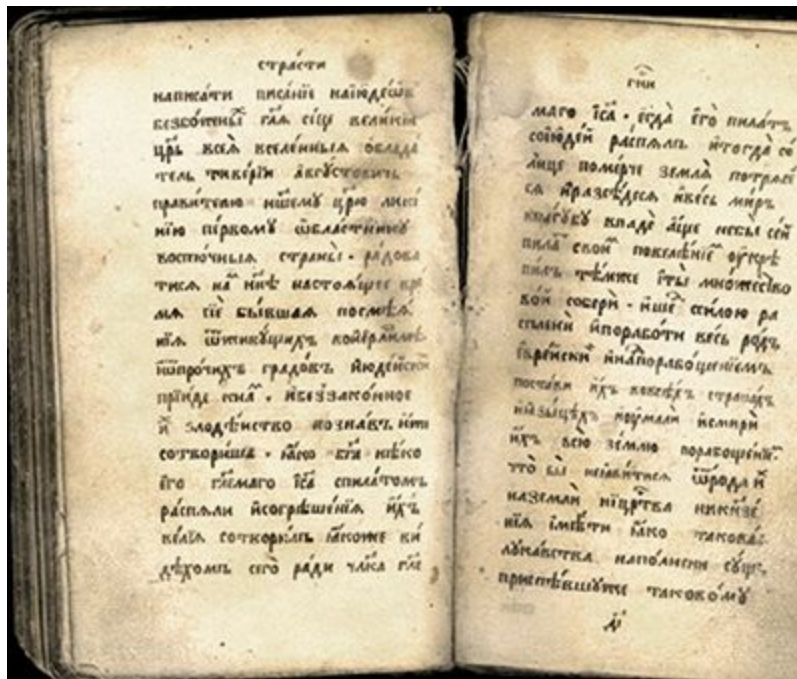 стра́сти
написа́ти писа́нїе наїюде́ѡⷡ҇
безбо́жныⷯ гл҃я си́це вели́кїи
цр҃ь всея̀ вселе́нныя облада
тель тиве́рїи а́вгустовичь
прави́телю нш҃ему цр҃ю лики
нїю пе́рвому ѡбластнику
восто́чныя страны̀. ра́дова
тися наⷨ нн҃ѣ настоя́щее вре́
мя сїѐ бы́вшая посмѣя́
нїя ѿживу́щихъ воїер҃лимѣ
ѿпро́чихъ градо́въ їюде́йскиⷯ
прїи́де кнаⷨ. ибеззако́нное
иⷯ злодѣ́йство позна́въ
сотвори́ша. ꙗ҆́ко бг҃а нѣ́ко
его гл҃емаго і҆с҃а спила́томъ
распя́ли исогрѣше́нїя и́хъ
ве́лїя сотвори́лъ ꙗ҆́коже ви
дѣ́хомъ сего̀ ра́ди чл҃ка гл҃е
гн҃и
маго і҆с҃а. егда̀ его̀ пила́тъ
соїюде́й распя́лъ итогда̀ со́
лнце поме́рче земля̀ потрясе́
ся иразсѣ́деся иве́сь ми́ръ
впа́губу впадѐ а́ще небы̀ се́й
пилаⷮ свои́ⷨ повелѣ́нїеⷨ оукрѣ
пи́лъ тѣ́мже и҆ты̀ мно́жество
во́й соберѝ. и҆ше́ⷣ си́лою ра
сплени́ ипорабо́ти ве́сь ро́дъ
евре́йскиⷯ инапорабоще́нїемъ
поста́ви и́хъ вовсѣ́хъ страна́хъ
иязы́цѣхъ иоумалѝ исмирѝ
и́хъ всю̀ зе́млю порабоще́нїеⷨ.
что̀ бы̀ неяви́тися ѿро́да иⷯ
наземлѝ ницр҃ства никня́зе́
нїя имѣ́ти ꙗ҆́ко такова́г
лука́вства напо́лнени су́щ.
приспѣ́вшуже таково́му